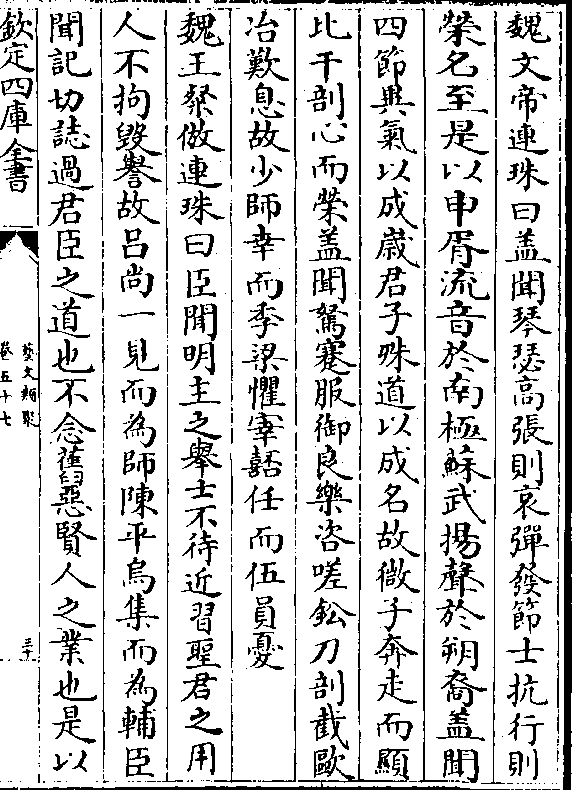 魏文帝連珠曰盖聞琴瑟高張則哀彈發節士抗行則
榮名至是以申胥流音於南極蘇武揚聲於朔裔盖聞
四節異氣以成嵗君子殊道以成名故微子奔走而顯
比干剖心而榮盖聞駑蹇服御良樂咨嗟鈆刀剖截歐
冶歎息故少師幸而季梁懼宰嚭任而伍員憂
魏王粲倣連珠曰臣聞明主之舉士不待近習聖君之用
人不拘毁譽故吕尚一見而為師陳平烏集而為輔臣
聞記切誌過君臣之道也不念舊惡賢人之業也是以
欽定四庫全書
藝文類聚
卷五十七
三十